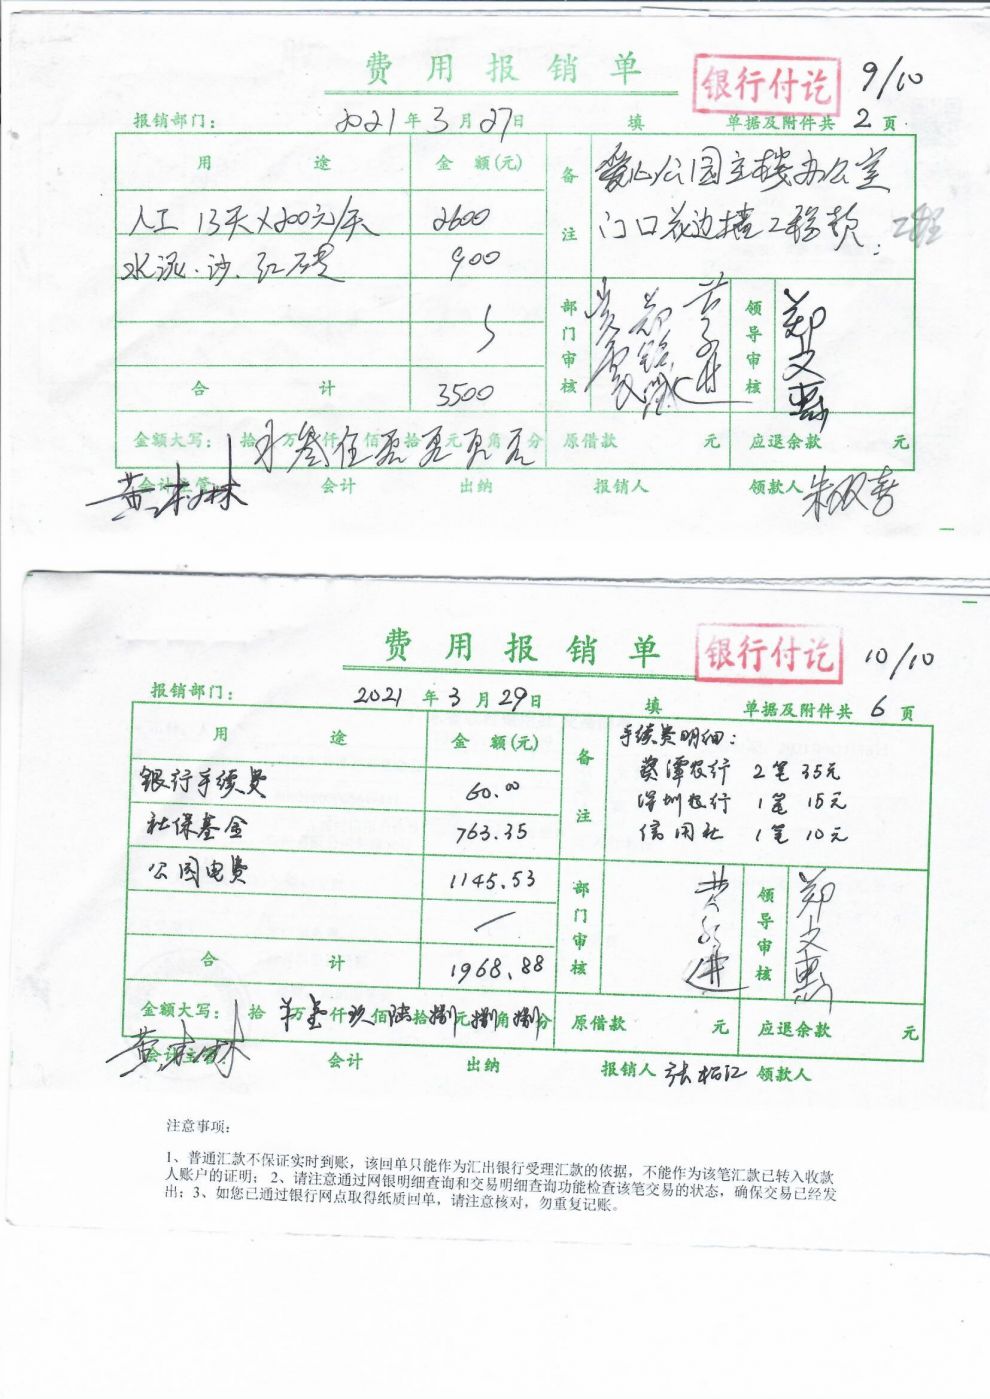 费用报销单 银行付讫 9/10
报销部门： 2021年3月27日 填 单据及附件共 2 页
用途 金额(元) 备注 爱心公园主楼办公室
人工 13天×200元/天 2600 门口花边墙工程款： 工程
水泥、沙、红砖 900
部门审核 领导审核 郑文惠
合计 3500
金额大写： 拾 万叁仟伍佰零拾零元零角零分 原借款 元 应退余款 元
会计主管 黄木林 会计 出纳 报销人 领款人 朱双喜
费用报销单 银行付讫 10/10
报销部门： 2021年3月29日 填 单据及附件共 6 页
用途 金额(元) 备注 手续费明细：
银行手续费 60.00 葵潭农行 2笔 35元
深圳农行 1笔 15元
社保基金 763.35 信用社 1笔 10元
公园电费 1145.53
部门审核 领导审核 郑文惠
合计 1968.88
金额大写： 拾 万壹仟玖佰陆拾捌元捌角捌分 原借款 元 应退余款 元
会计主管 黄木林 会计 出纳 报销人 张柏江 领款人
注意事项：
1、普通汇款不保证实时到账，该回单只能作为汇出银行受理汇款的依据，不能作为该笔汇款已转入收款
人账户的证明；2、请注意通过网银明细查询和交易明细查询功能检查该笔交易的状态，确保交易已经发
出；3、如您已通过银行网点取得纸质回单，请注意核对，勿重复记账。